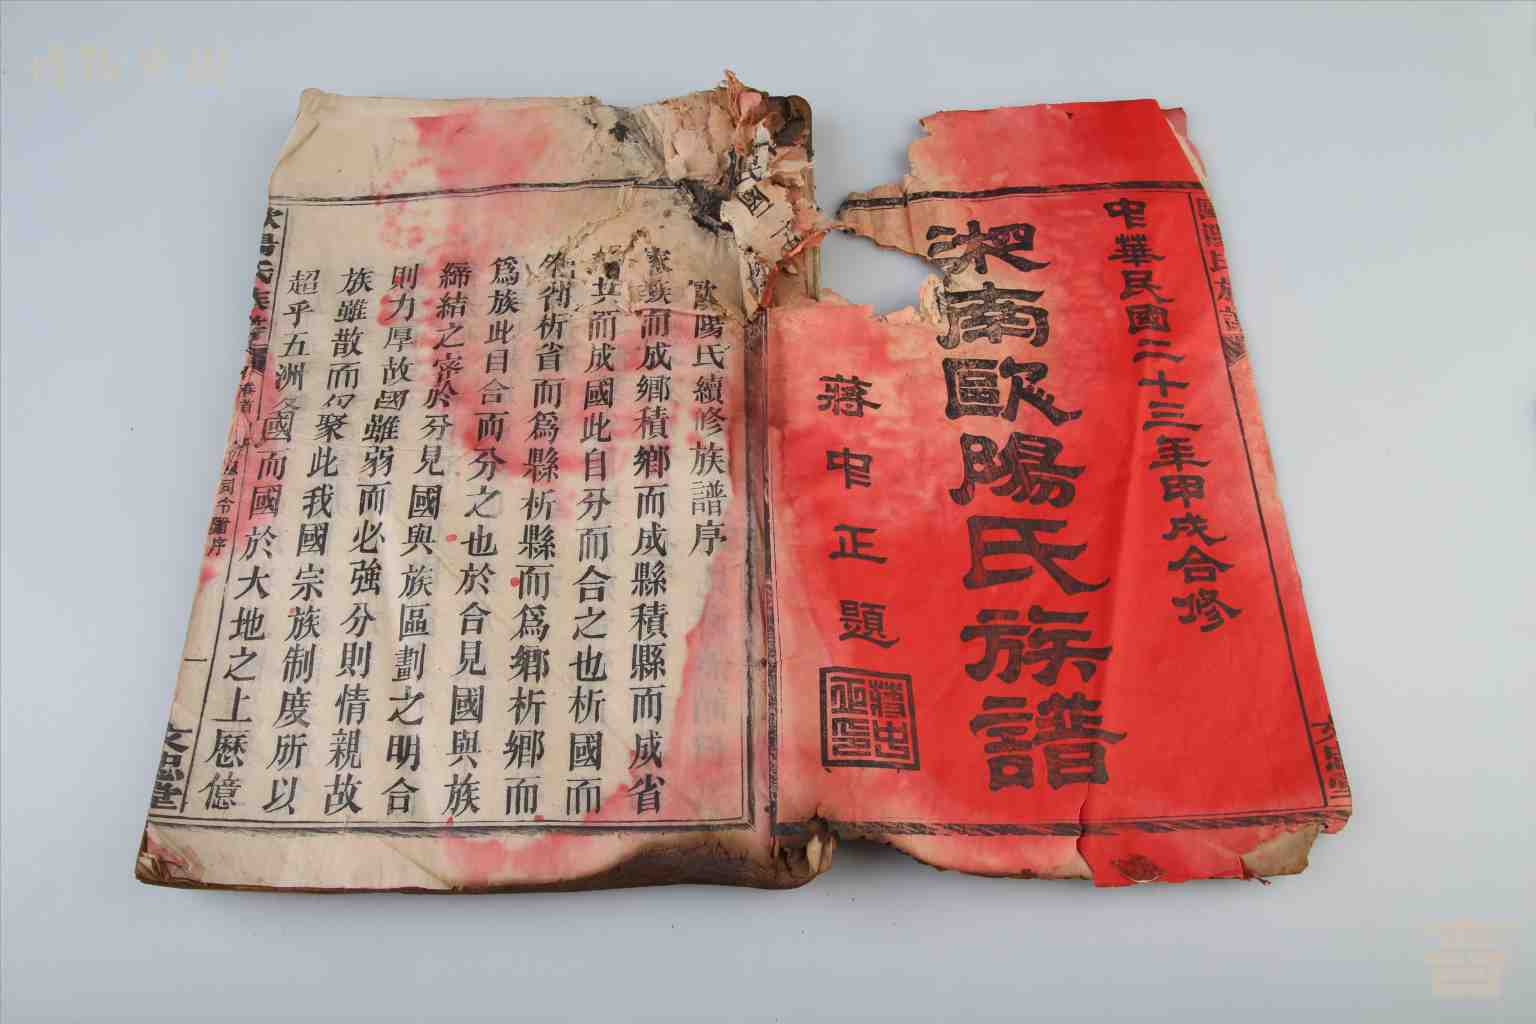 中華民國二十三年甲戌合修
湘南歐陽氏族譜
蔣中正題
蔣中正印
文思堂
歐陽氏續修族譜序
家族而成鄉積鄉而成縣積縣而成省
其而成國此自分而合之也析國而
省析省而爲縣析縣而爲鄉析鄉而
爲族此自合而分之也於合見國與族
締結之密於分見國與族區劃之明合
則力厚故國雖弱而必強分則情親故
族雖散而仍聚此我國宗族制度所以
超乎五洲各國而國於大地之上歷億
歐陽氏族譜
卷首
司令蕭序
一
文思堂